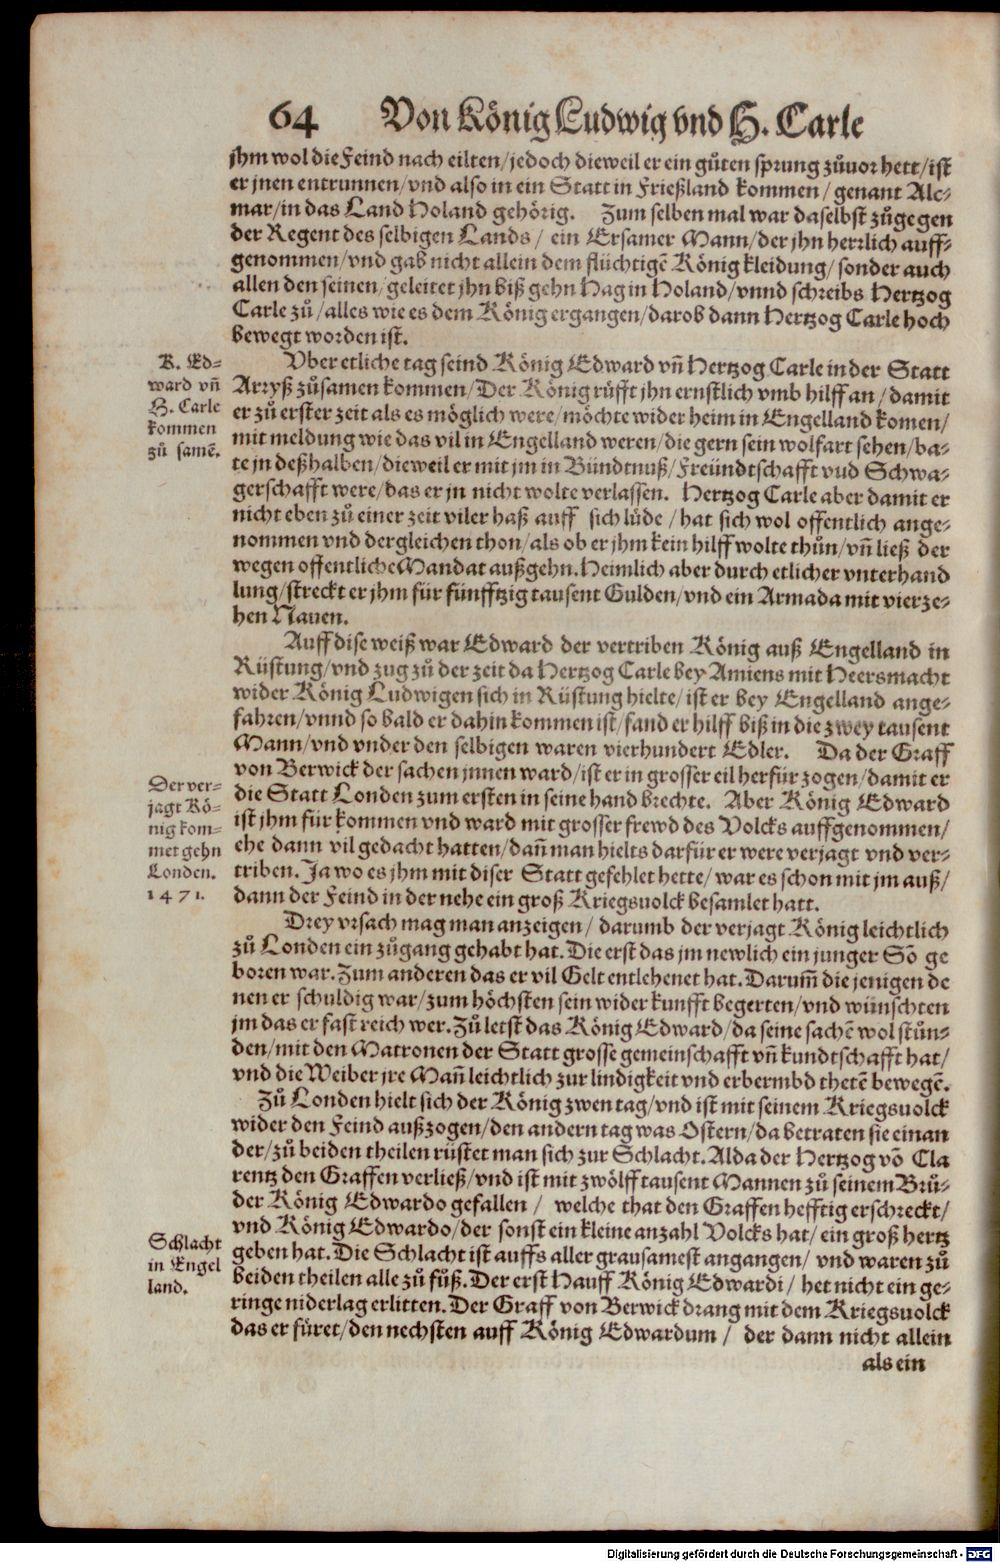 64 Von König Ludwig vnd H. Carle
jhm wol die Feind nach eilten/jedoch dieweil er ein gůten sprung zůuor hett/ist
er jnen entrunnen/vnd also in ein Statt in Frießland kommen/genant Alc-
mar/in das Land Holand gehörig. Zum selben mal war daselbst zůgegen
der Regent des selbigen Lands/ ein Ersamer Mann/der jhn herrlich auff-
genommen/vnd gab nicht allein dem flüchtigē König kleidung/sonder auch
allen den seinen/geleitet jhn biß gehn Hag in Holand/vnnd schreibs Hertzog
Carle zů/alles wie es dem König ergangen/darob dann Hertzog Carle hoch
bewegt worden ist.
K. Ed-
ward vñ
H. Carle
kommen
zů samē.
Vber etliche tag seind König Edward vñ Hertzog Carle in der Statt
Arryß zůsamen kommen/Der König růfft jhn ernstlich vmb hilff an/damit
er zů erster zeit als es möglich were/möchte wider heim in Engelland komen/
mit meldung wie das vil in Engelland weren/die gern sein wolfart sehen/ba-
te jn deßhalben/dieweil er mit jm in Bündtnuß/Freündtschafft vnd Schwa-
gerschafft were/das er jn nicht wolte verlassen. Hertzog Carle aber damit er
nicht eben zů einer zeit viler haß auff sich lůde/hat sich wol offentlich ange-
nommen vnd dergleichen thon/als ob er jhm kein hilff wolte thůn/vñ ließ der
wegen offentliche Mandat außgehn. Heimlich aber durch etlicher vnterhand
lung/streckt er jhm für fünfftzig tausent Gulden/vnd ein Armada mit vierze-
hen Nauen.
Auff dise weiß war Edward der vertriben König auß Engelland in
Rüstung/vnd zug zů der zeit da Hertzog Carle bey Amiens mit Heersmacht
wider König Ludwigen sich in Rüstung hielte/ist er bey Engelland ange-
fahren/vnnd so bald er dahin kommen ist/fand er hilff biß in die zwey tausent
Mann/vnd vnder den selbigen waren vierhundert Edler. Da der Graff
von Berwick der sachen jnnen ward/ist er in grosser eil herfür zogen/damit er
die Statt Londen zum ersten in seine hand brechte. Aber König Edward
ist jhm für kommen vnd ward mit grosser frewd des Volcks auffgenommen/
ehe dann vil gedacht hatten/dañ man hielts darfür er were verjagt vnd ver-
triben. Ja wo es jhm mit diser Statt gefehlet hette/war es schon mit jm auß/
dann der Feind in der nehe ein groß Kriegsuolck besamlet hatt.
Der ver-
jagt Kö-
nig kom-
met gehn
Londen.
1471.
Drey vrsach mag man anzeigen/ darumb der verjagt König leichtlich
zů Londen ein zůgang gehabt hat. Die erst das jm newlich ein junger Sō ge
boren war. Zum anderen das er vil Gelt entlehenet hat. Darum̄ die jenigen de
nen er schuldig war/zum höchsten sein wider kunfft begerten/vnd wünschten
jm das er fast reich wer. Zů letst das König Edward/da seine sachē wol stůn-
den/mit den Matronen der Statt grosse gemeinschafft vñ kundtschafft hat/
vnd die Weiber jre Mañ leichtlich zur lindigkeit vnd erbermbd thetē bewegē.
Zů Londen hielt sich der König zwen tag/vnd ist mit seinem Kriegsuolck
wider den Feind außzogen/den andern tag was Ostern/da betraten sie einan
der/zů beiden theilen rüstet man sich zur Schlacht. Alda der Hertzog vō Cla
rentz den Graffen verließ/vnd ist mit zwölff tausent Mannen zů seinem Brů-
der König Edwardo gefallen/ welche that den Graffen hefftig erschreckt/
vnd König Edwardo/der sonst ein kleine anzahl Volcks hat/ein groß hertz
geben hat. Die Schlacht ist auffs aller grausamest angangen/ vnd waren zů
beiden theilen alle zů fůß. Der erst Hauff König Edwardi/ het nicht ein ge-
ringe niderlag erlitten. Der Graff von Berwick drang mit dem Kriegsuolck
das er füret/den nechsten auff König Edwardum/ der dann nicht allein
Schlacht
in Engel
land.
als ein
Digitalisierung gefördert durch die Deutsche Forschungsgemeinschaft - DFG